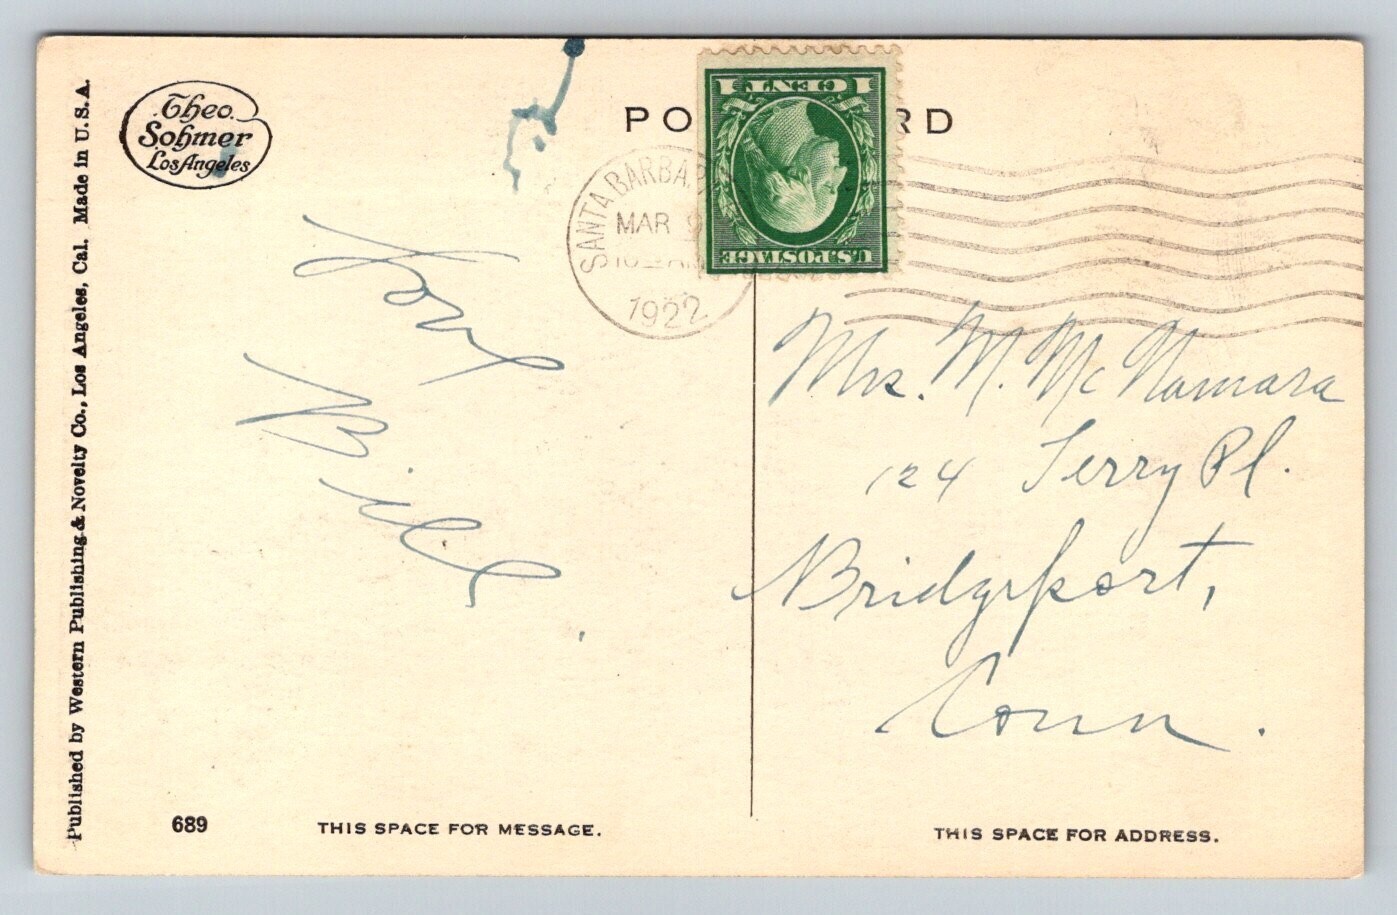 Published by Western Publishing & Novelty Co., Los Angeles, Cal. Made in U.S.A.
Theo.
Sohmer
Los Angeles
PO RD
SANTA BARBA
MAR 9
1922
1 CENT 1
U.S. POSTAGE
Love
Bill.
Mrs. M. McNamara
124 Terry Pl.
Bridgeport,
Conn.
689
THIS SPACE FOR MESSAGE.
THIS SPACE FOR ADDRESS.